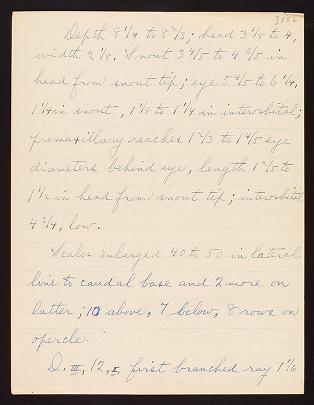 3182
Depth 8 1/4 to 8 2/3; head 3 4/8 to 4,
width 2 1/8. Snout 3 4/5 to 4 3/5 in
head from snout tip; eye 5 4/5 to 6 1/4,
1 1/4 in snout, 1 1/8 to 1 1/4 in interorbital;
premaxillary reaches 1 2/3 to 1 4/5 eye
diameters behind eye, length 1 2/5 to
1 1/2 in head from snout tip; interorbital
4 3/4, low.
Scales enlarged 40 to 50 in lateral
line to caudal base and 2 more on
latter; 10 above, 7 below, 8 rows on
opercle.
D. III, 12, I, first branched ray 1 1/6